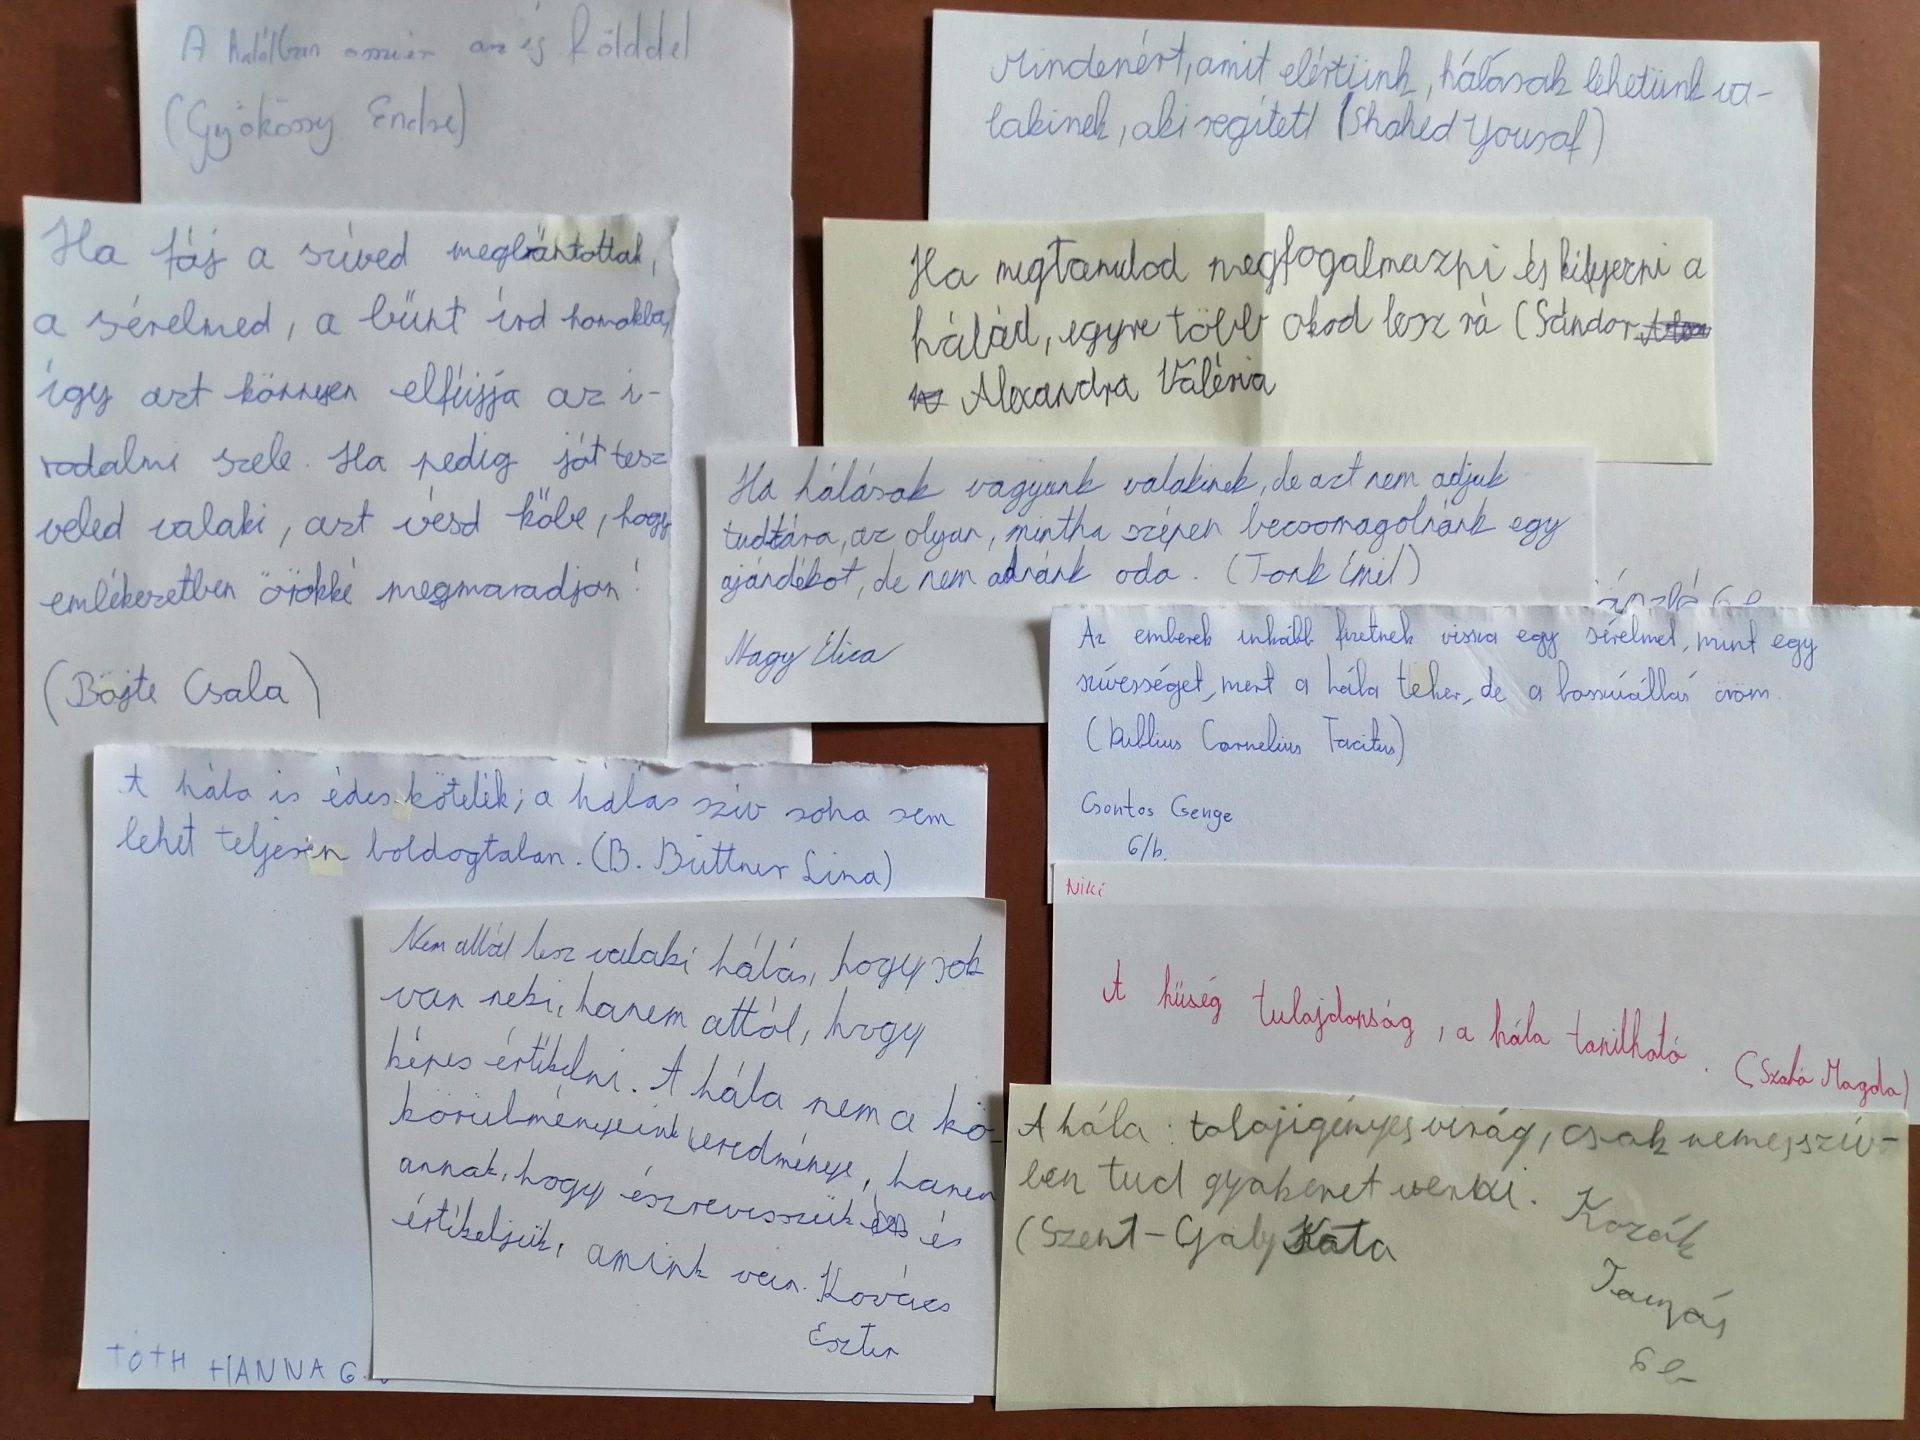 A hálában összeér az ég földdel
(Gyökössy Endre)
Mindenért, amit elértünk, hálásak lehetünk va-
lakinek, aki segített (Shahed Yousaf)
Ha fáj a szíved megbántottak,
a sérelmed, a bűnt írd homokba,
így azt könnyen elfújja az i-
rodalmi szele. Ha pedig jót tesz
veled valaki, azt vésd kőbe, hogy
emlékezetben örökké megmaradjon!
(Böjte Csala)
Ha megtanulod megfogalmazni és kifejezni a
hálád, egyre több okod lesz rá (Sándor
Alexandra Valéria
Ha hálásak vagyunk valakinek, de azt nem adjuk
tudtára, az olyan, mintha szépen becsomagolnánk egy
ajándékot, de nem adnánk oda. (Tonk Emil)
Nagy Elica
6 b
Az emberek inkább fizetnek vissza egy sérelmet, mint egy
szívességet, mert a hála teher, de a bosszúállás öröm.
(Publius Cornelius Tacitus)
Csontos Csenge
6/b.
A hála is édes kötelék; a hálás szív soha sem
lehet teljesen boldogtalan. (B. Büttner Lina)
TÓTH HANNA 6.
Nem attól lesz valaki hálás, hogy sok
van neki, hanem attól, hogy
képes értékelni. A hála nem a kö-
körülményeink eredménye, hanem
annak, hogy észrevesszük és
értékeljük, amink van. Kovács
Eszter
Niki
A hűség tulajdonság, a hála tanulható. (Szabó Magda)
A hála: talajigényes virág, csak nemes szív-
ben tud gyökeret verni.
(Szent-Gály Kata
Kozák
Tamás
6 b